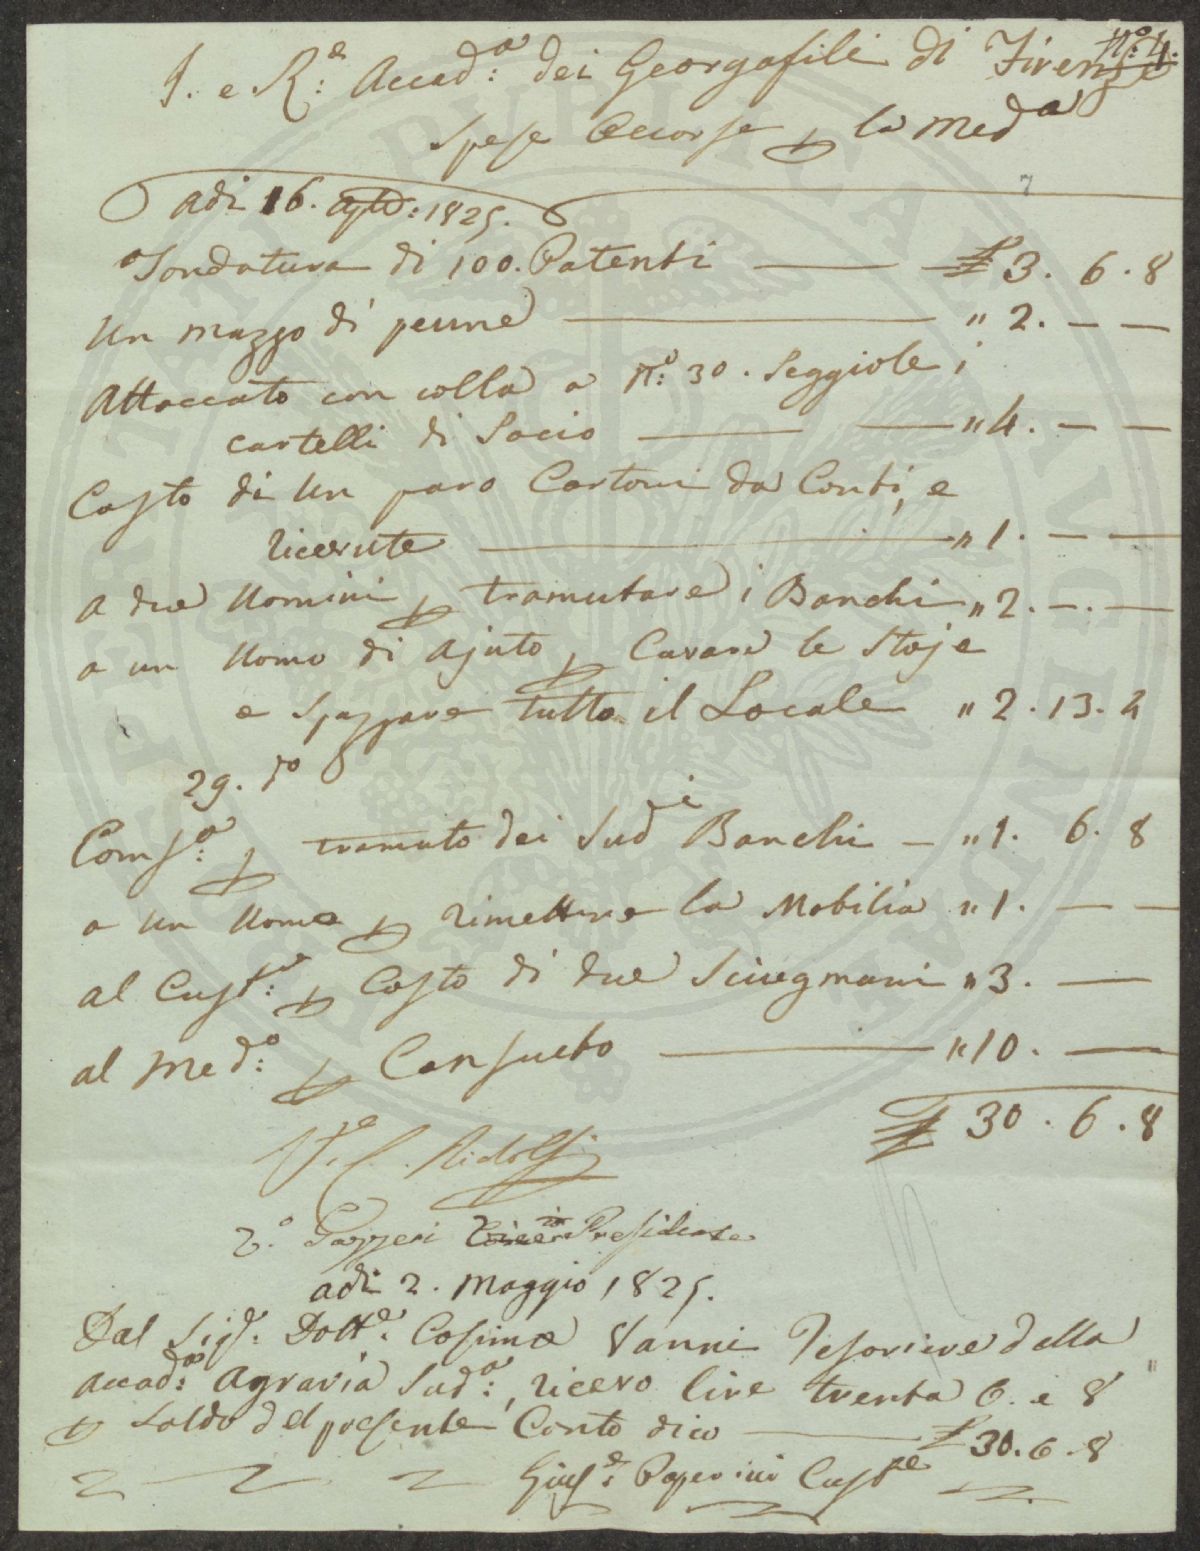 N.° 4.
I. e R.e Accad.a dei Georgofili di Firenze
Spese occorse p la Med.a
Adi 16. 1825.
Tondatura di 100. Patenti £ 3. 6. 8
Un mazzo di penne " 2. — —
Attaccato con colla a N.° 30. Seggiole i
cartelli di Socio " 4. — —
Costo di un paro Cartoni da Conti, e
ricevute " 1. — —
a due Uomini p tramutare i Banchi " 2. — —
a un Uomo di Ajuto p Cavare le Stoje
e Spazzare tutto il Locale " 2. 13. 4
29. d.o
Comp.a p tramuto dei Sud.i Banchi — " 1. 6. 8
a un Uomo p rimettere la Mobilia " 1. — —
al Cust.e p Costo di due Sciugmani " 3. —
al Med.o p Consueto " 10. —
£ 30. 6. 8
V.e C. Ridolfi
V.° Gazzeri Presidente
adi 2. Maggio 1825.
Dal Sig.r Dott.e Cosimo Vanni Tesoriere della
Accad.a Agraria Sud.a, ricevo lire trenta 6. e 8 "
p Saldo del presente Conto dico £ 30. 6. 8
Gius.e Paperini Cust.e
PROSPERITATI PUBLICAE AUGENDAE